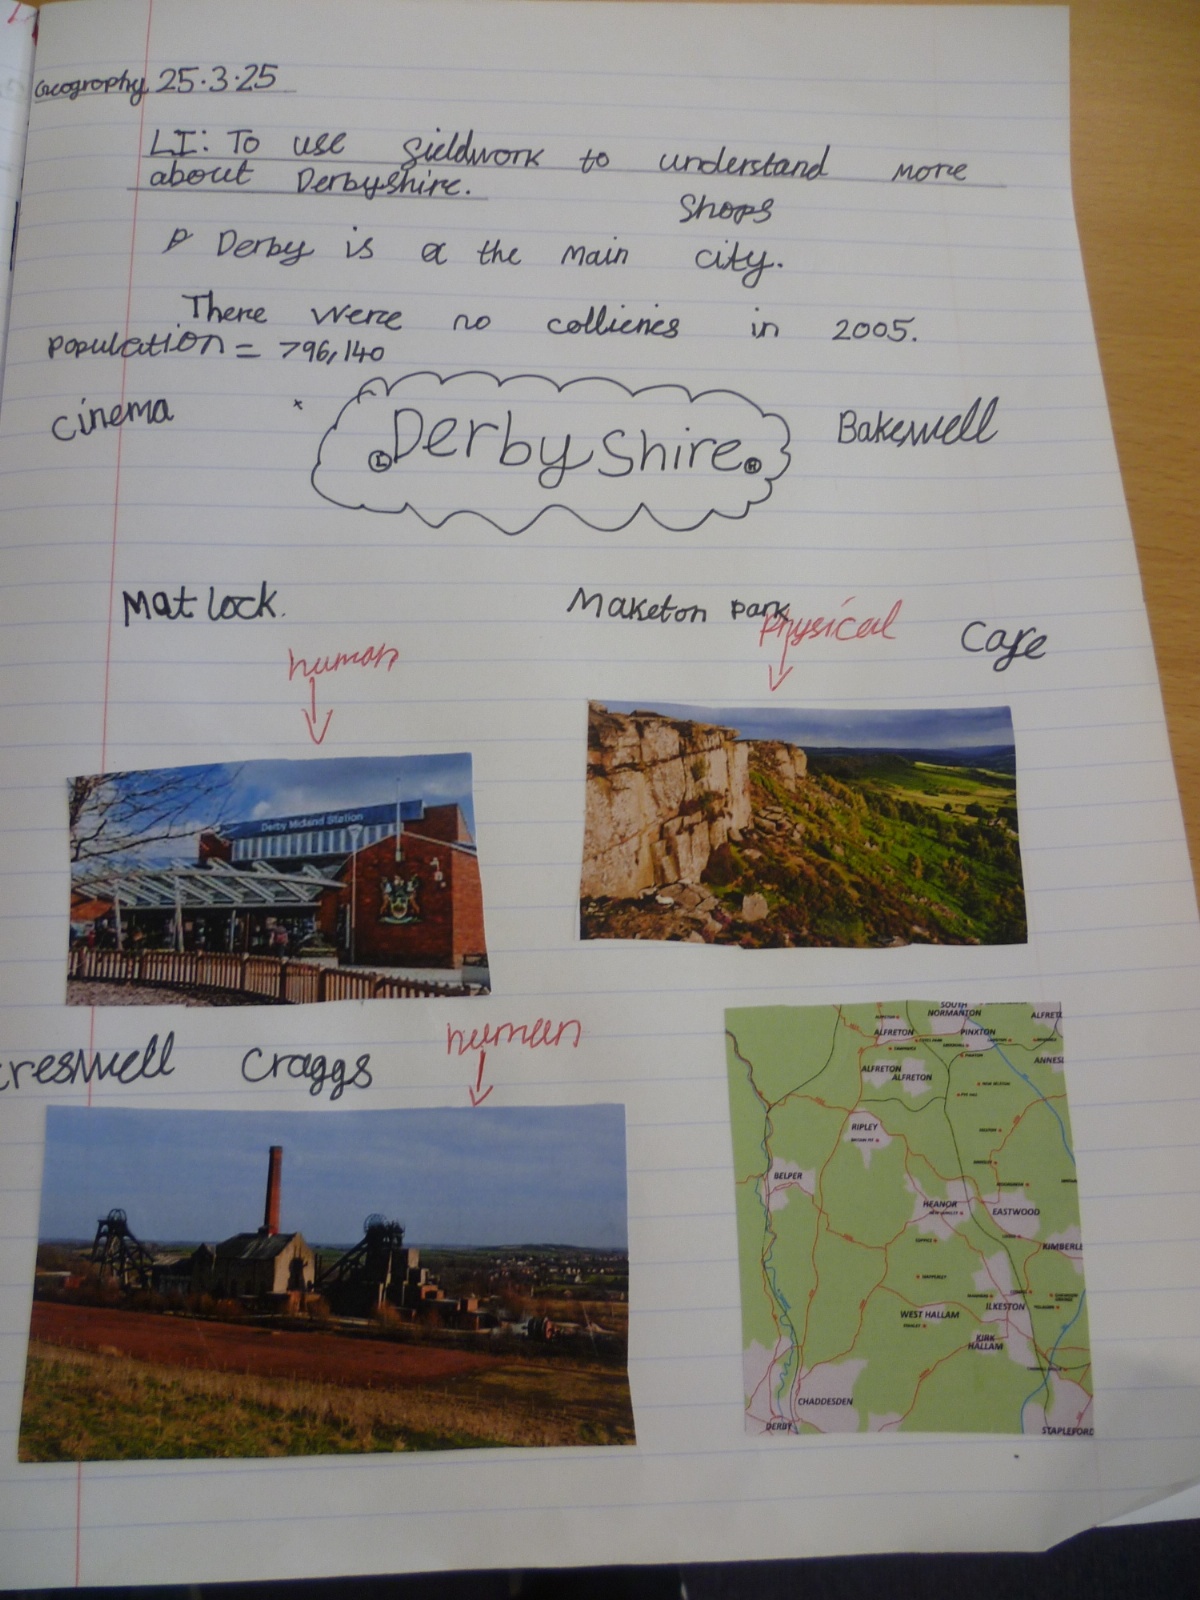 Geography 25.3.25
LI: To use fieldwork to understand more
about Derbyshire.
Shops
Derby is a the main city.
There were no collieries in 2005.
population = 796,140
cinema
Derbyshire
Bakewell
Matlock.
Maketon park
physical
Cafe
human
Derby Midland Station
human
creswell Craggs
SOUTH
NORMANTON
ALFRETON
PINXTON
ALFRET
ANNESL
ALFRETON
ALFRETON
RIPLEY
BELPER
HEANOR
EASTWOOD
KIMBERLE
WEST HALLAM
ILKESTON
KIRK
HALLAM
CHADDESDEN
DERBY
STAPLEFORD